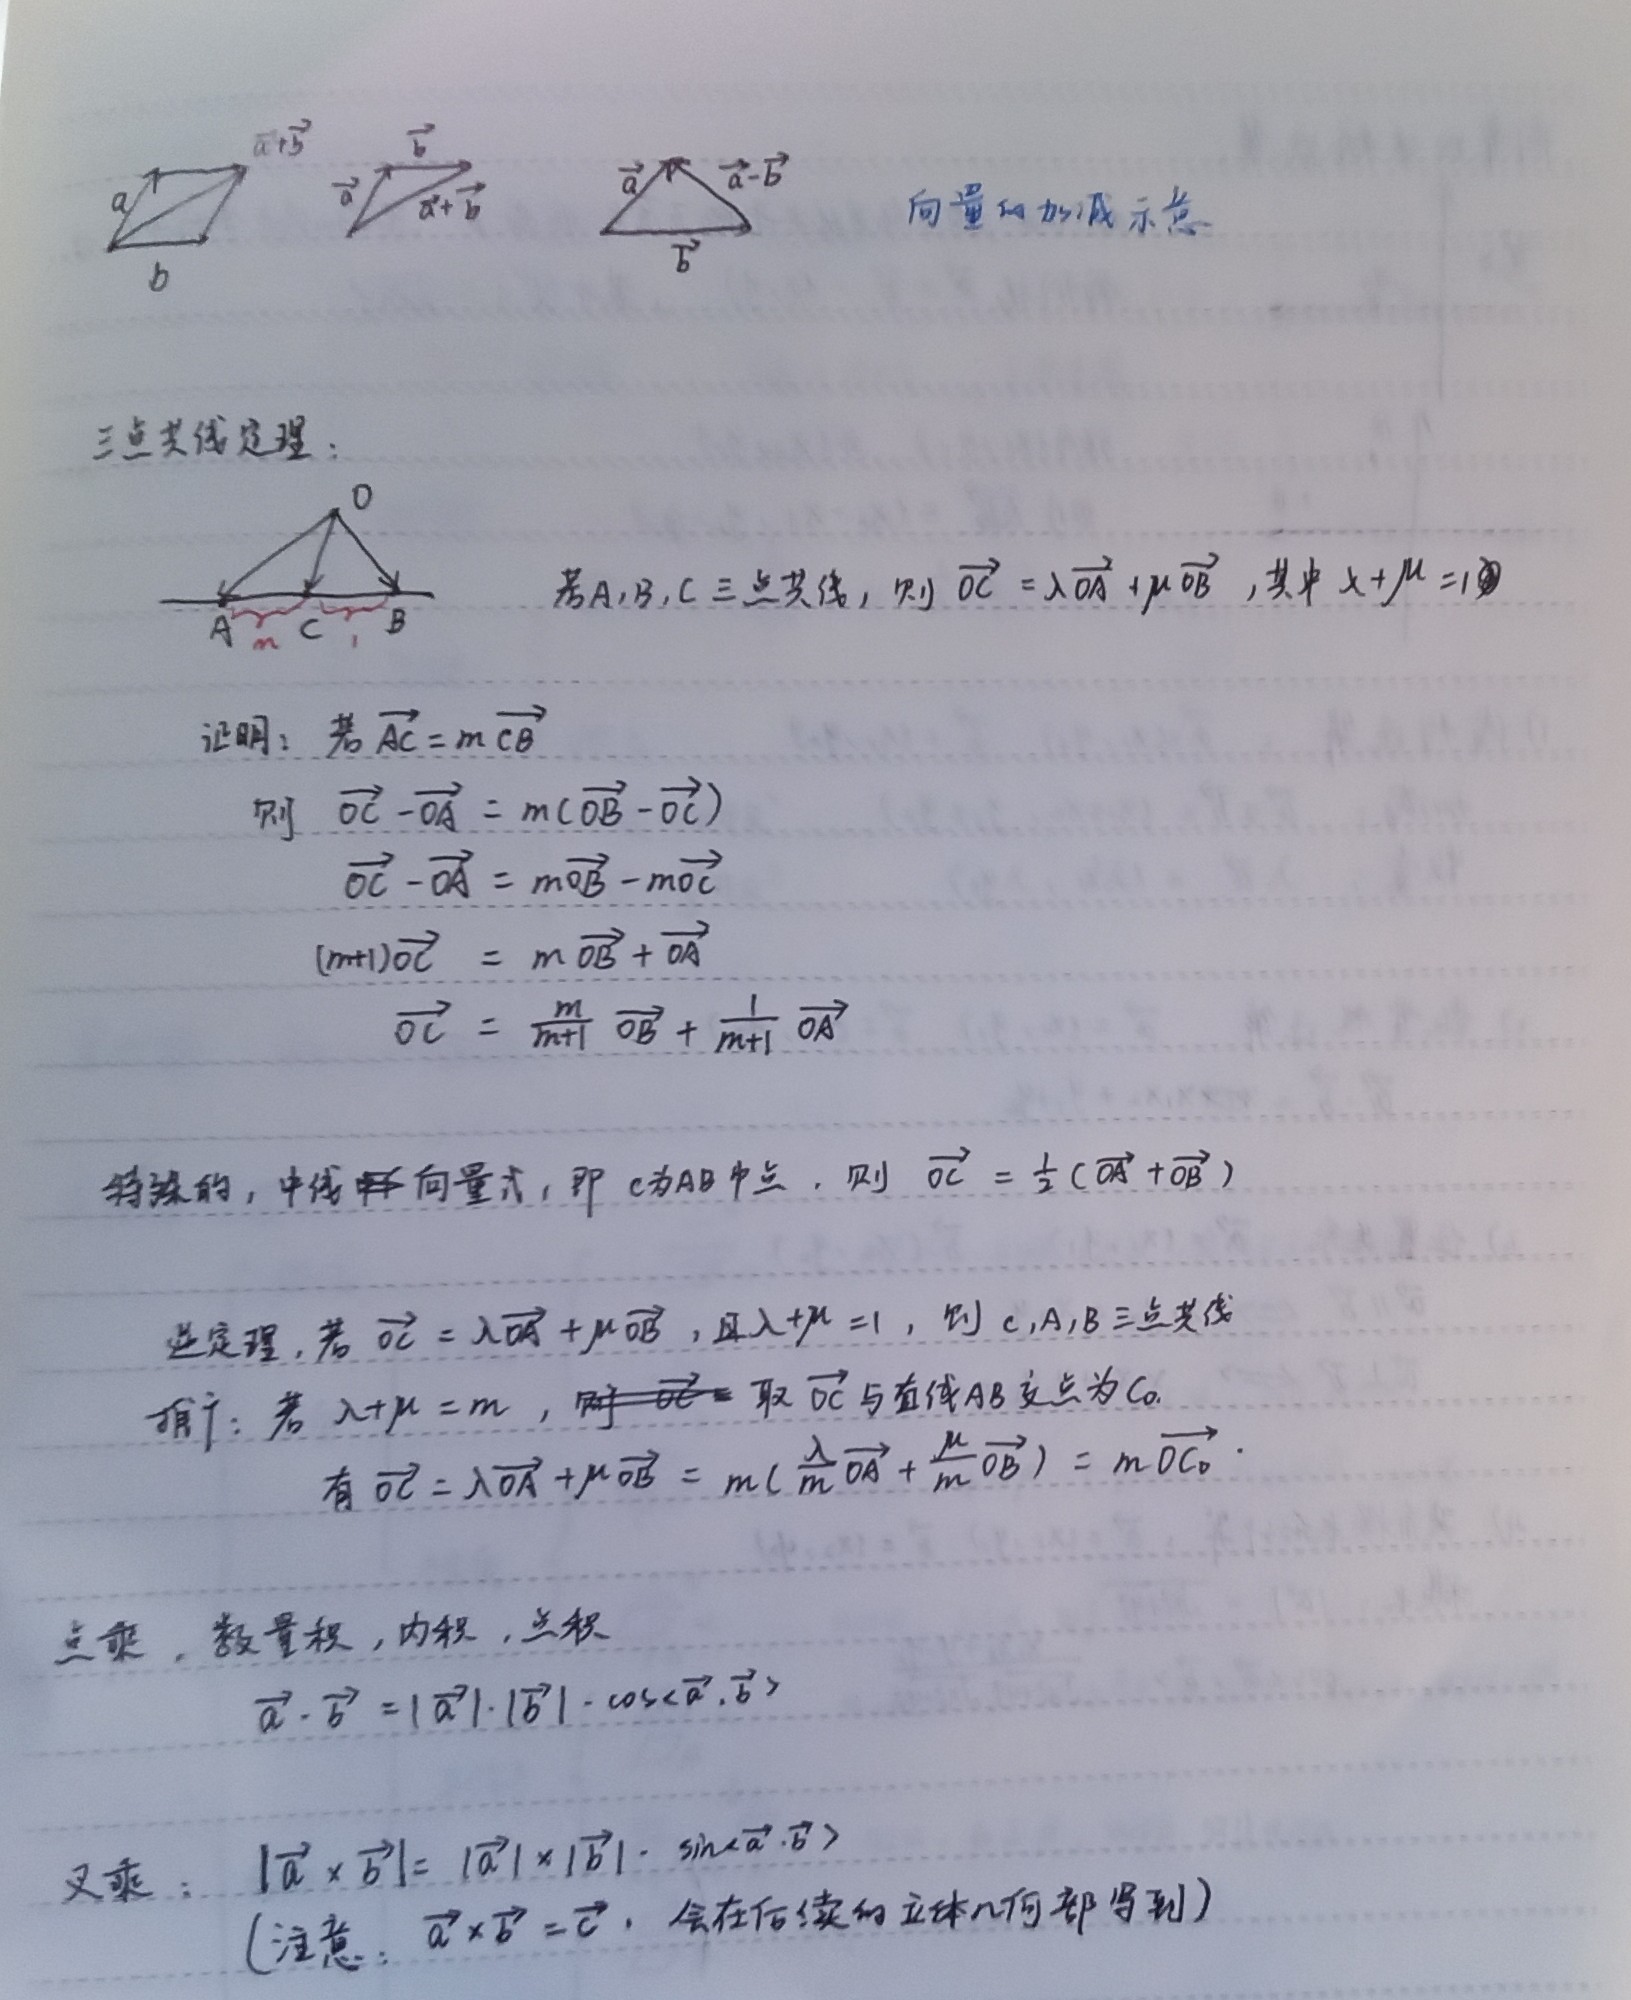 a a+b b
a b a+b
a a-b b
向量的加减示意
三点共线定理:
O
A m C 1 B
若A,B,C三点共线,则 OC = λOA + μOB ,其中 λ+μ=1
证明: 若 AC = m CB
则 OC - OA = m(OB - OC)
OC - OA = mOB - mOC
(m+1)OC = m OB + OA
OC = m/(m+1) OB + 1/(m+1) OA
特殊的,中线向量式,即 C为AB中点,则 OC = 1/2 (OA + OB)
逆定理,若 OC = λOA + μOB ,且λ+μ=1,则 C,A,B三点共线
推广:若 λ+μ=m , 取 OC 与直线AB交点为C₀.
有 OC = λOA + μOB = m( λ/m OA + μ/m OB ) = m OC₀ .
点乘,数量积,内积,点积
a · b = |a|·|b|· cos<a,b>
叉乘: |a × b| = |a|×|b|· sin<a·b>
(注意: a×b = c, 会在后续的立体几何部写到)